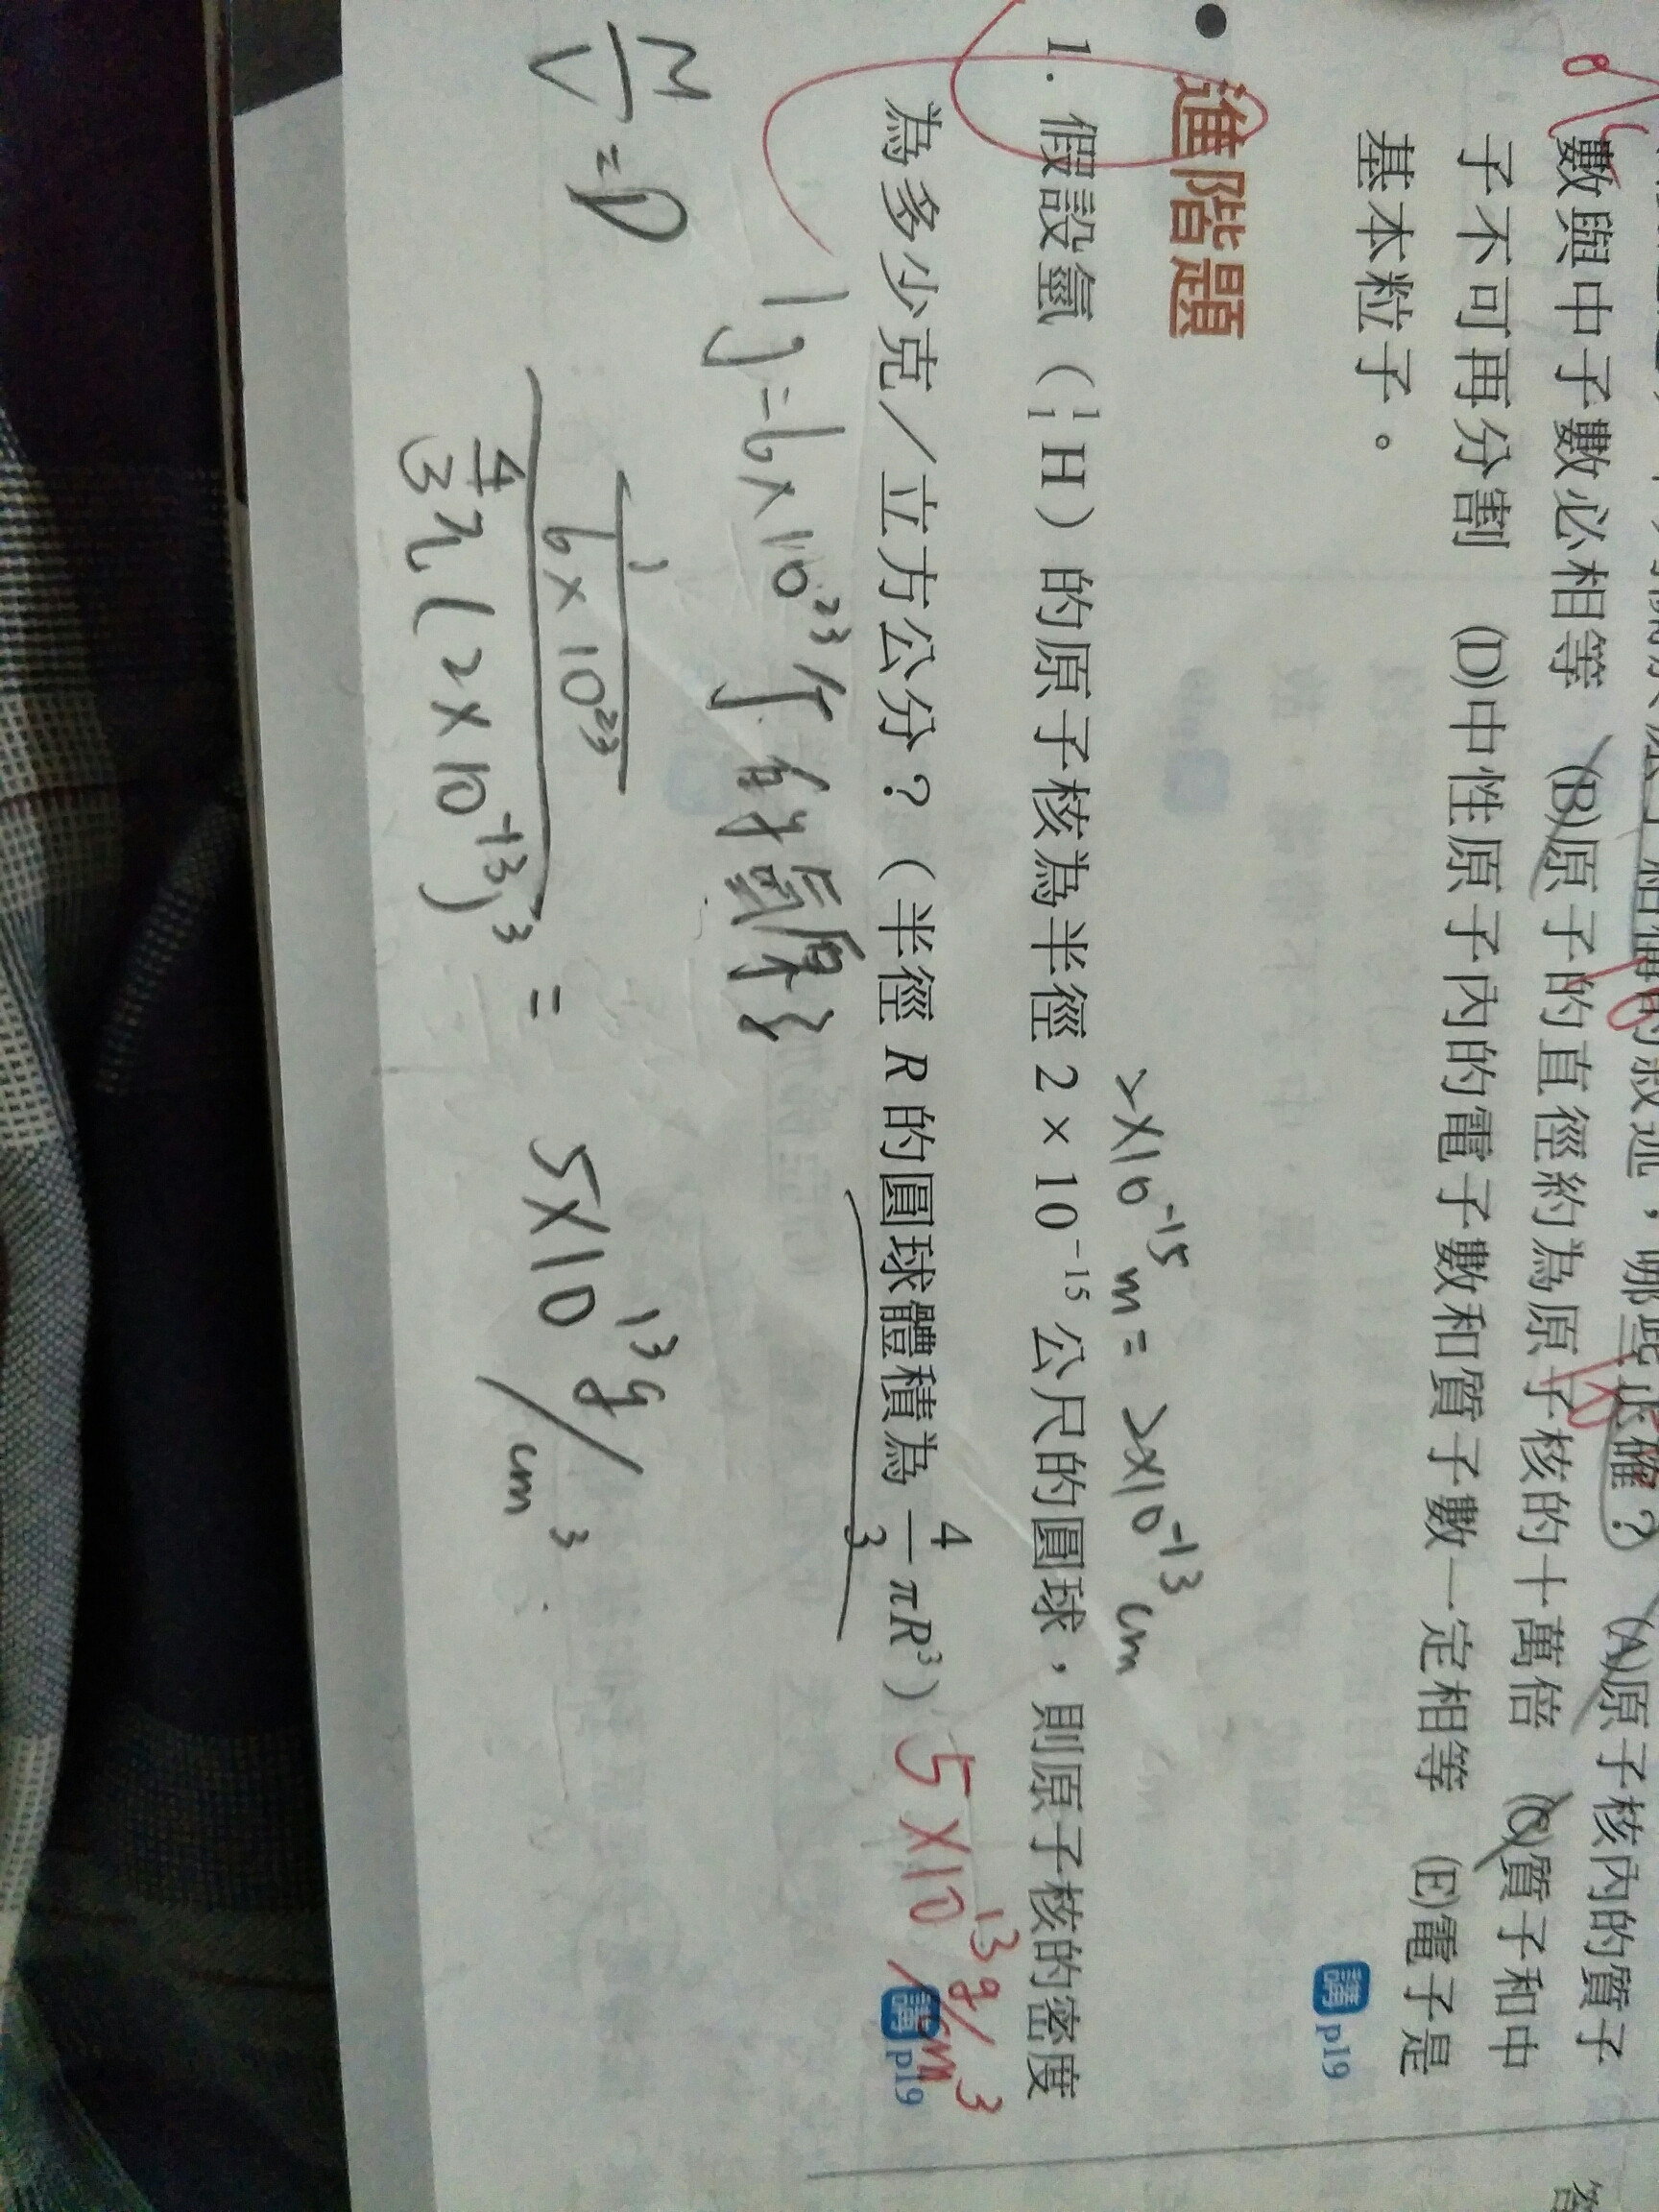 數與中子數必相等 (B)原子的直徑約為原子核的十萬倍 (C)質子和中
子不可再分割 (D)中性原子內的電子數和質子數一定相等 (E)電子是
基本粒子。
講 p19
進階題
2×10⁻¹⁵ m = 2×10⁻¹³ cm
1. 假設氫（¹₁H）的原子核為半徑 2 × 10⁻¹⁵ 公尺的圓球，則原子核的密度
為多少克／立方公分？（半徑 R 的圓球體積為 4/3 πR³） 5×10¹³ g/cm³
講 p19
1g = 6×10²³个 氫原子
M/V = D
1/(6×10²³) / 4/3 π(2×10⁻¹³)³ = 5×10¹³ g/cm³